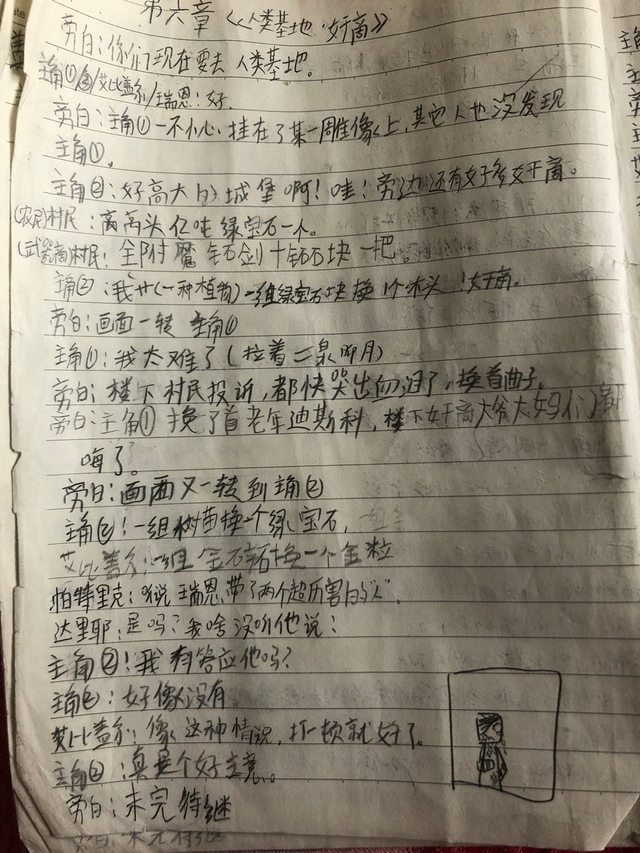 第六章《人类基地·奸商》
旁白：你们现在要去人类基地。
主角①/②/艾比盖尔/瑞恩：好.
旁白：主角①一不小心挂在了某一雕像上，其它人也没发现
主角①，
主角②：好高大的城堡啊！哇！旁边还有好多奸商。
(农民)村民：莴苣头亿吨绿宝石一个。
(武器商)村民：全附魔钻剑十钻石块一把
主角②：我艹(一种植物)一组绿宝石块换1个木头！奸商。
旁白：画面一转 主角①
主角①：我太难了(拉着二泉映月)
旁白：楼下村民投诉，都快哭出血泪了，换首曲子。
旁白：主角①换了首老年迪斯科，楼下奸商大爷大妈们都
嗨了。
旁白：画面又一转到主角②
主角②！一组树苗换一个绿宝石，
艾比盖尔：一组 换一个金粒
帕特里克：听说瑞恩带了两个超厉害的“人”.
达里耶：是吗？我啥没听他说！
主角②！我有答应他吗？
主角②：好像没有。
艾比盖尔：像这种情况，打一顿就好了。
主角②：真是个好主意。
旁白：未完待继